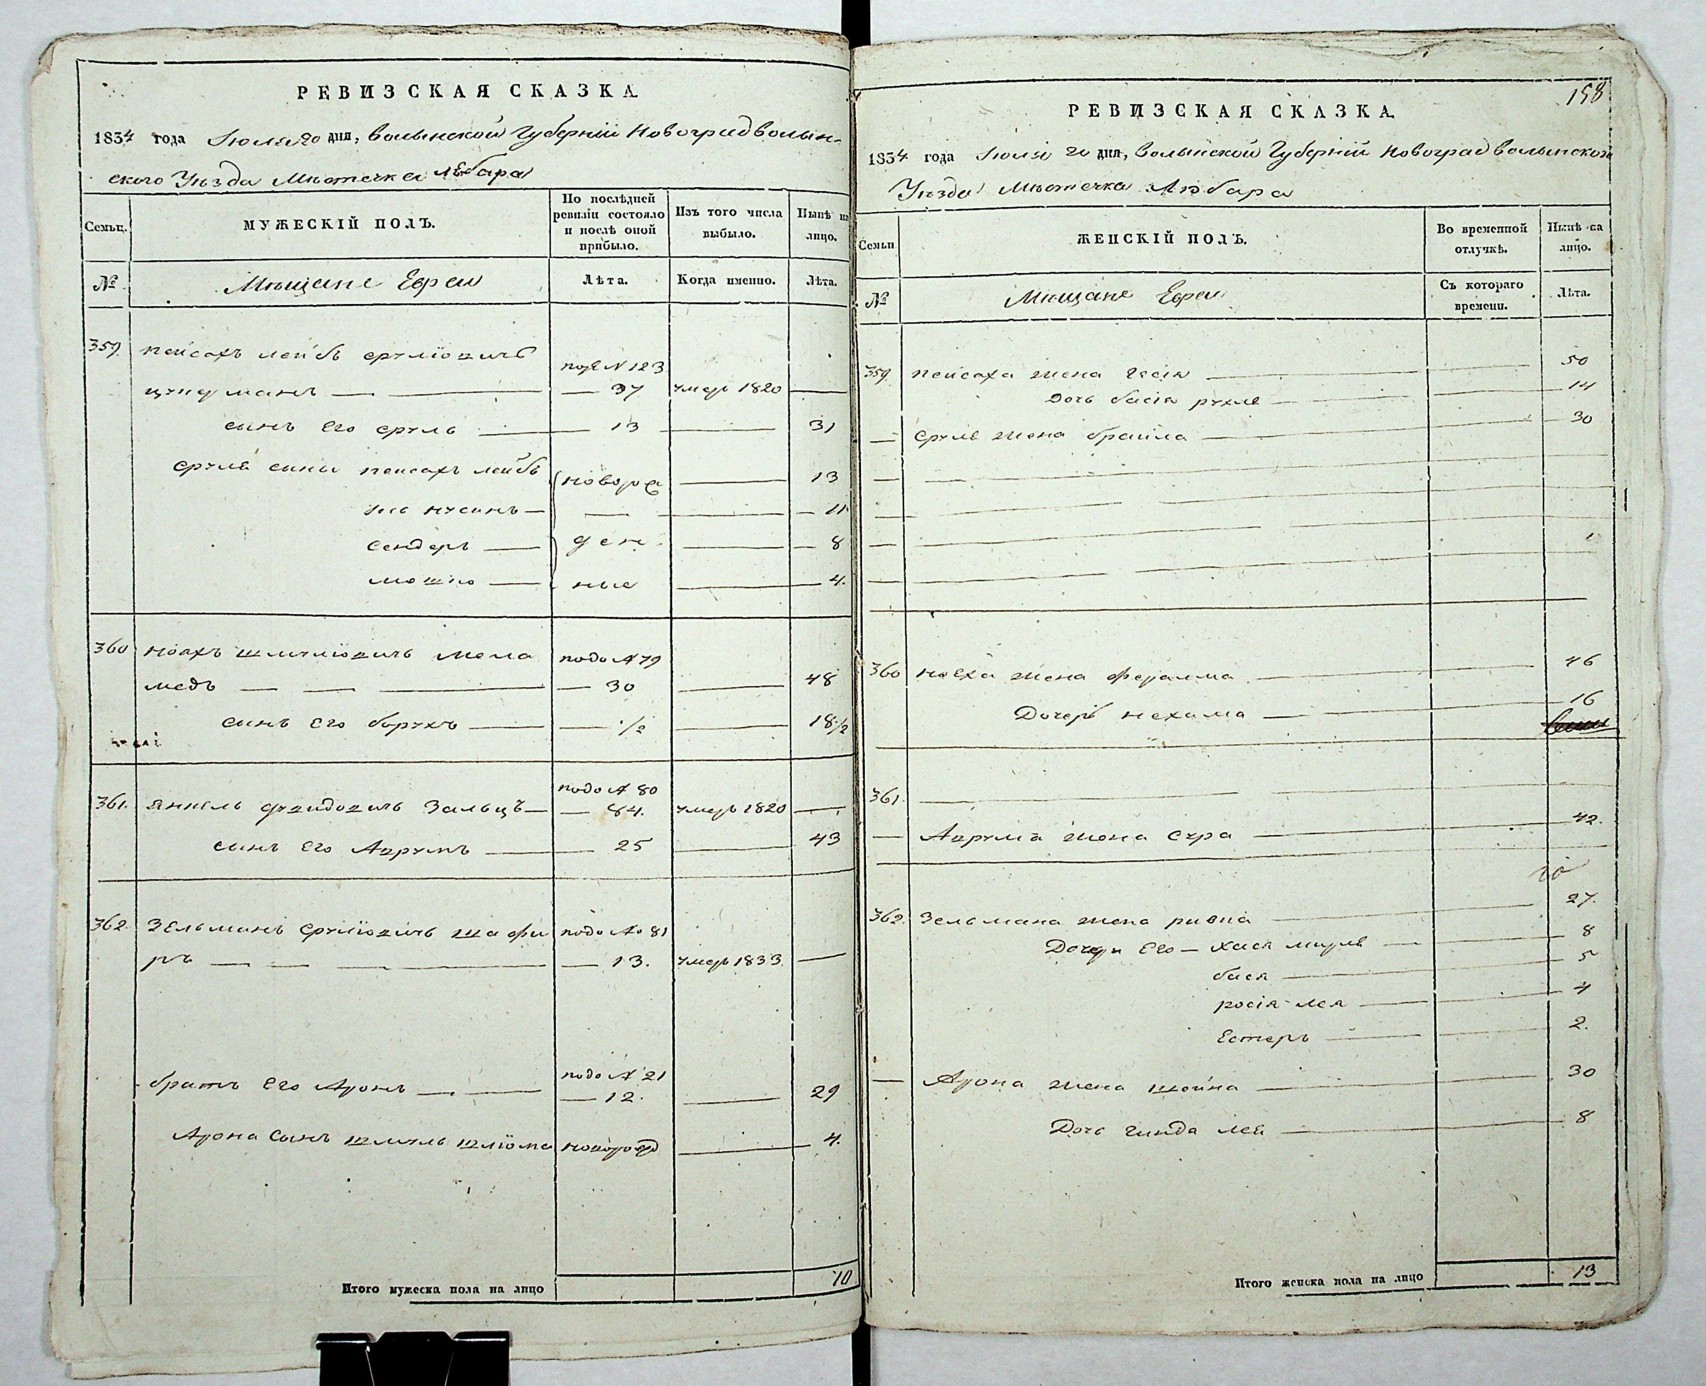 РЕВИЗСКАЯ СКАЗКА.
1834 года Іюля 20 дня, Волынской Губерніи Новоградволын-
ского Уѣзда Мѣстечка Любара
Семьи.
МУЖЕСКІЙ ПОЛЪ.
По послѣдней ревизіи состояло и послѣ оной прибыло.
Изъ того числа выбыло.
Нынѣ на лицо.
№
Мѣщане Евреи
Лѣта.
Когда именно.
Лѣта.
359. Пейсахъ Лейбъ Срулiовичъ
подъ N 123
Цукерманъ 37 умеръ 1820
сынъ его Сруль 13 31
Сруля сины Пейсахъ Лейбъ новоро 13
Нусинъ 11
Сендеръ ден 8
Мошко ные 4.
360 Ноахъ Шмулiовичъ Мела подъ № 79
медъ 30 48
синъ его Борухъ 1/2 18 1/2
361. Янкель Зальцъ подъ № 80
84. умеръ 1820
синъ его Аврумъ 25 43
362. Зельманъ Срулiовичъ Шафи подъ № 81
ръ 13. умеръ 1833.
братъ его Аронъ подъ № 21
12. 29
Арона сынъ Шмуль Шлiома новорожд 4.
Итого мужеска пола на лицо 10
158
РЕВИЗСКАЯ СКАЗКА.
1834 года Іюля 20 дня, Волынской Губерніи Новоградволынского
Уѣзда Мѣстечка Любара
Семьи
ЖЕНСКІЙ ПОЛЪ.
Во временной отлучкѣ.
Нынѣ на лицо.
№
Мѣщане Евреи
Съ котораго времени.
Лѣта.
359. Пейсаха жена Гося 50
Дочь Бася Рухля 14
Сруля жена Брайла 30
360 Ноеха жена 46
Дочерь Нехама 16
361.
Аврума жена Сура 42.
362. Зельмана жена Ривка 27.
Дочери его Хася 8
Бася 5
Росiя Лея 4
Естеръ 2.
Арона жена Шейна 30
Дочь Гинда Лея 8
Итого женска пола на лицо 13